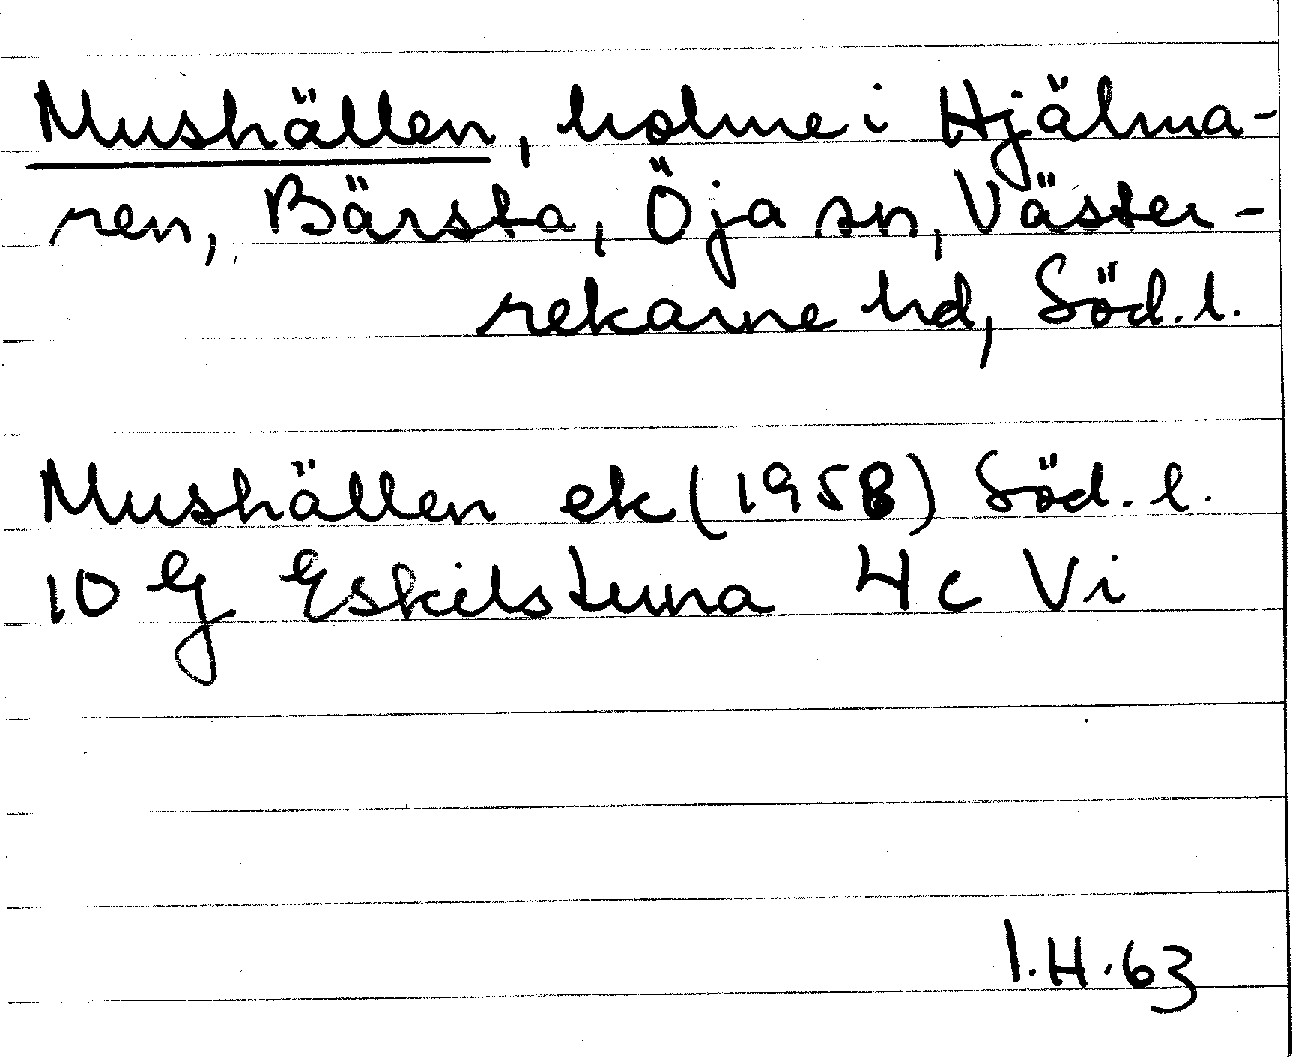 Mushällen, holme i Hjälma-
ren, Bärsta, Öja sn, Väster-
rekarne hd, Söd.l.
Mushällen ek (1958) Söd. l.
10 G Eskilstuna 4c Vi
I.H.63